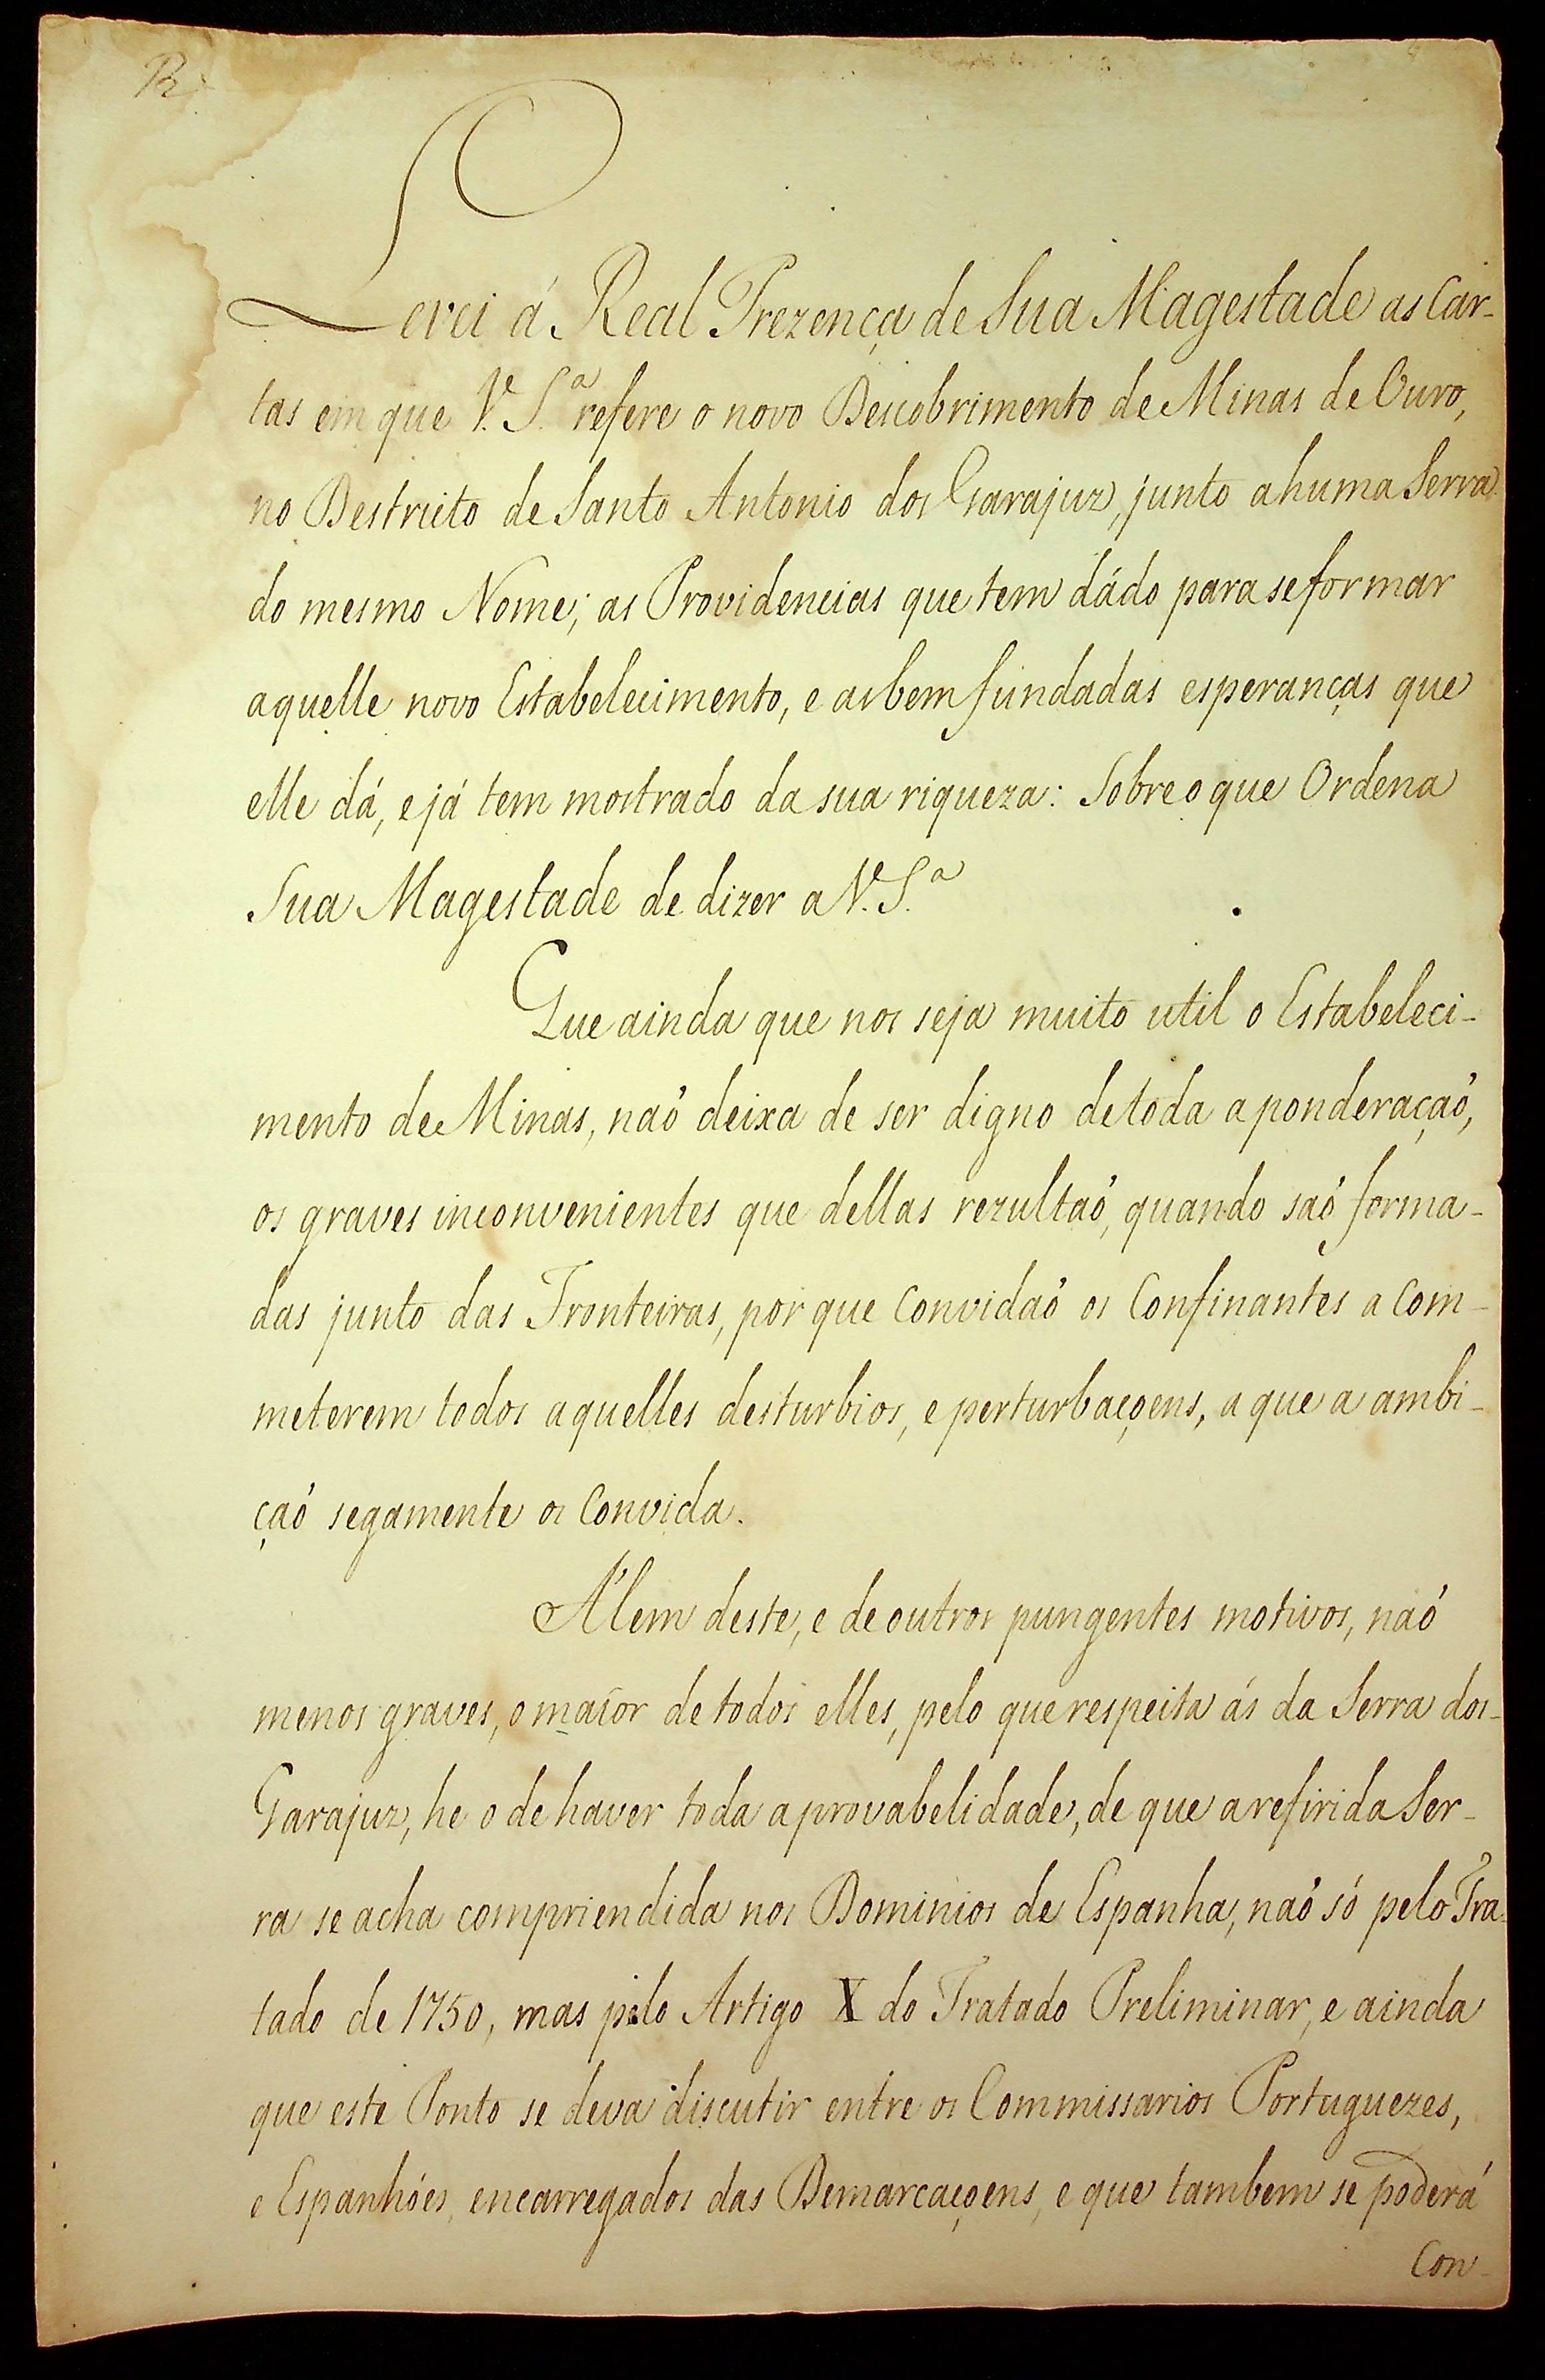 R.
Levei á Real Prezença de Sua Magestade as Car-
tas em que V. S.ª refere o novo Descobrimento de Minas de Ouro,
no Destricto de Santo Antonio dos Garajuz, junto a huma Serra
do mesmo Nome; as Providencias que tem dádo para se formar
aquelle novo Estabelecimento, e as bem fundadas esperanças que
elle dá, e já tem mostrado da sua riqueza: Sobre o que Ordena
Sua Magestade de dizer a V. S.ª
Que ainda que nos seja muito util o Estabeleci-
mento de Minas, naõ deixa de ser digno de toda a ponderaçaõ,
os graves inconvenientes que dellas rezultaõ, quando saõ forma-
das junto das Fronteiras, por que Convidaõ os Confinantes a Com-
meterem todos aquelles desturbios, e perturbaçoens, a que a ambi-
çaõ segamente os Convida.
Álem deste, e de outros pungentes motivos, naõ
menos graves, o maior de todos elles, pelo que respeita ás da Serra dos
Garajuz, he o de haver toda a provabelidade, de que a refirida Ser-
ra se acha compriendida nos Dominios de Espanha, naõ só pelo Tra-
tado de 1750, mas pelo Artigo X do Tratado Preliminar, e ainda
que este Ponto se deva discutir entre os Commissarios Portuguezes,
e Espanhóes, encarregados das Demarcaçoens, e que tambem se poderá
Con-